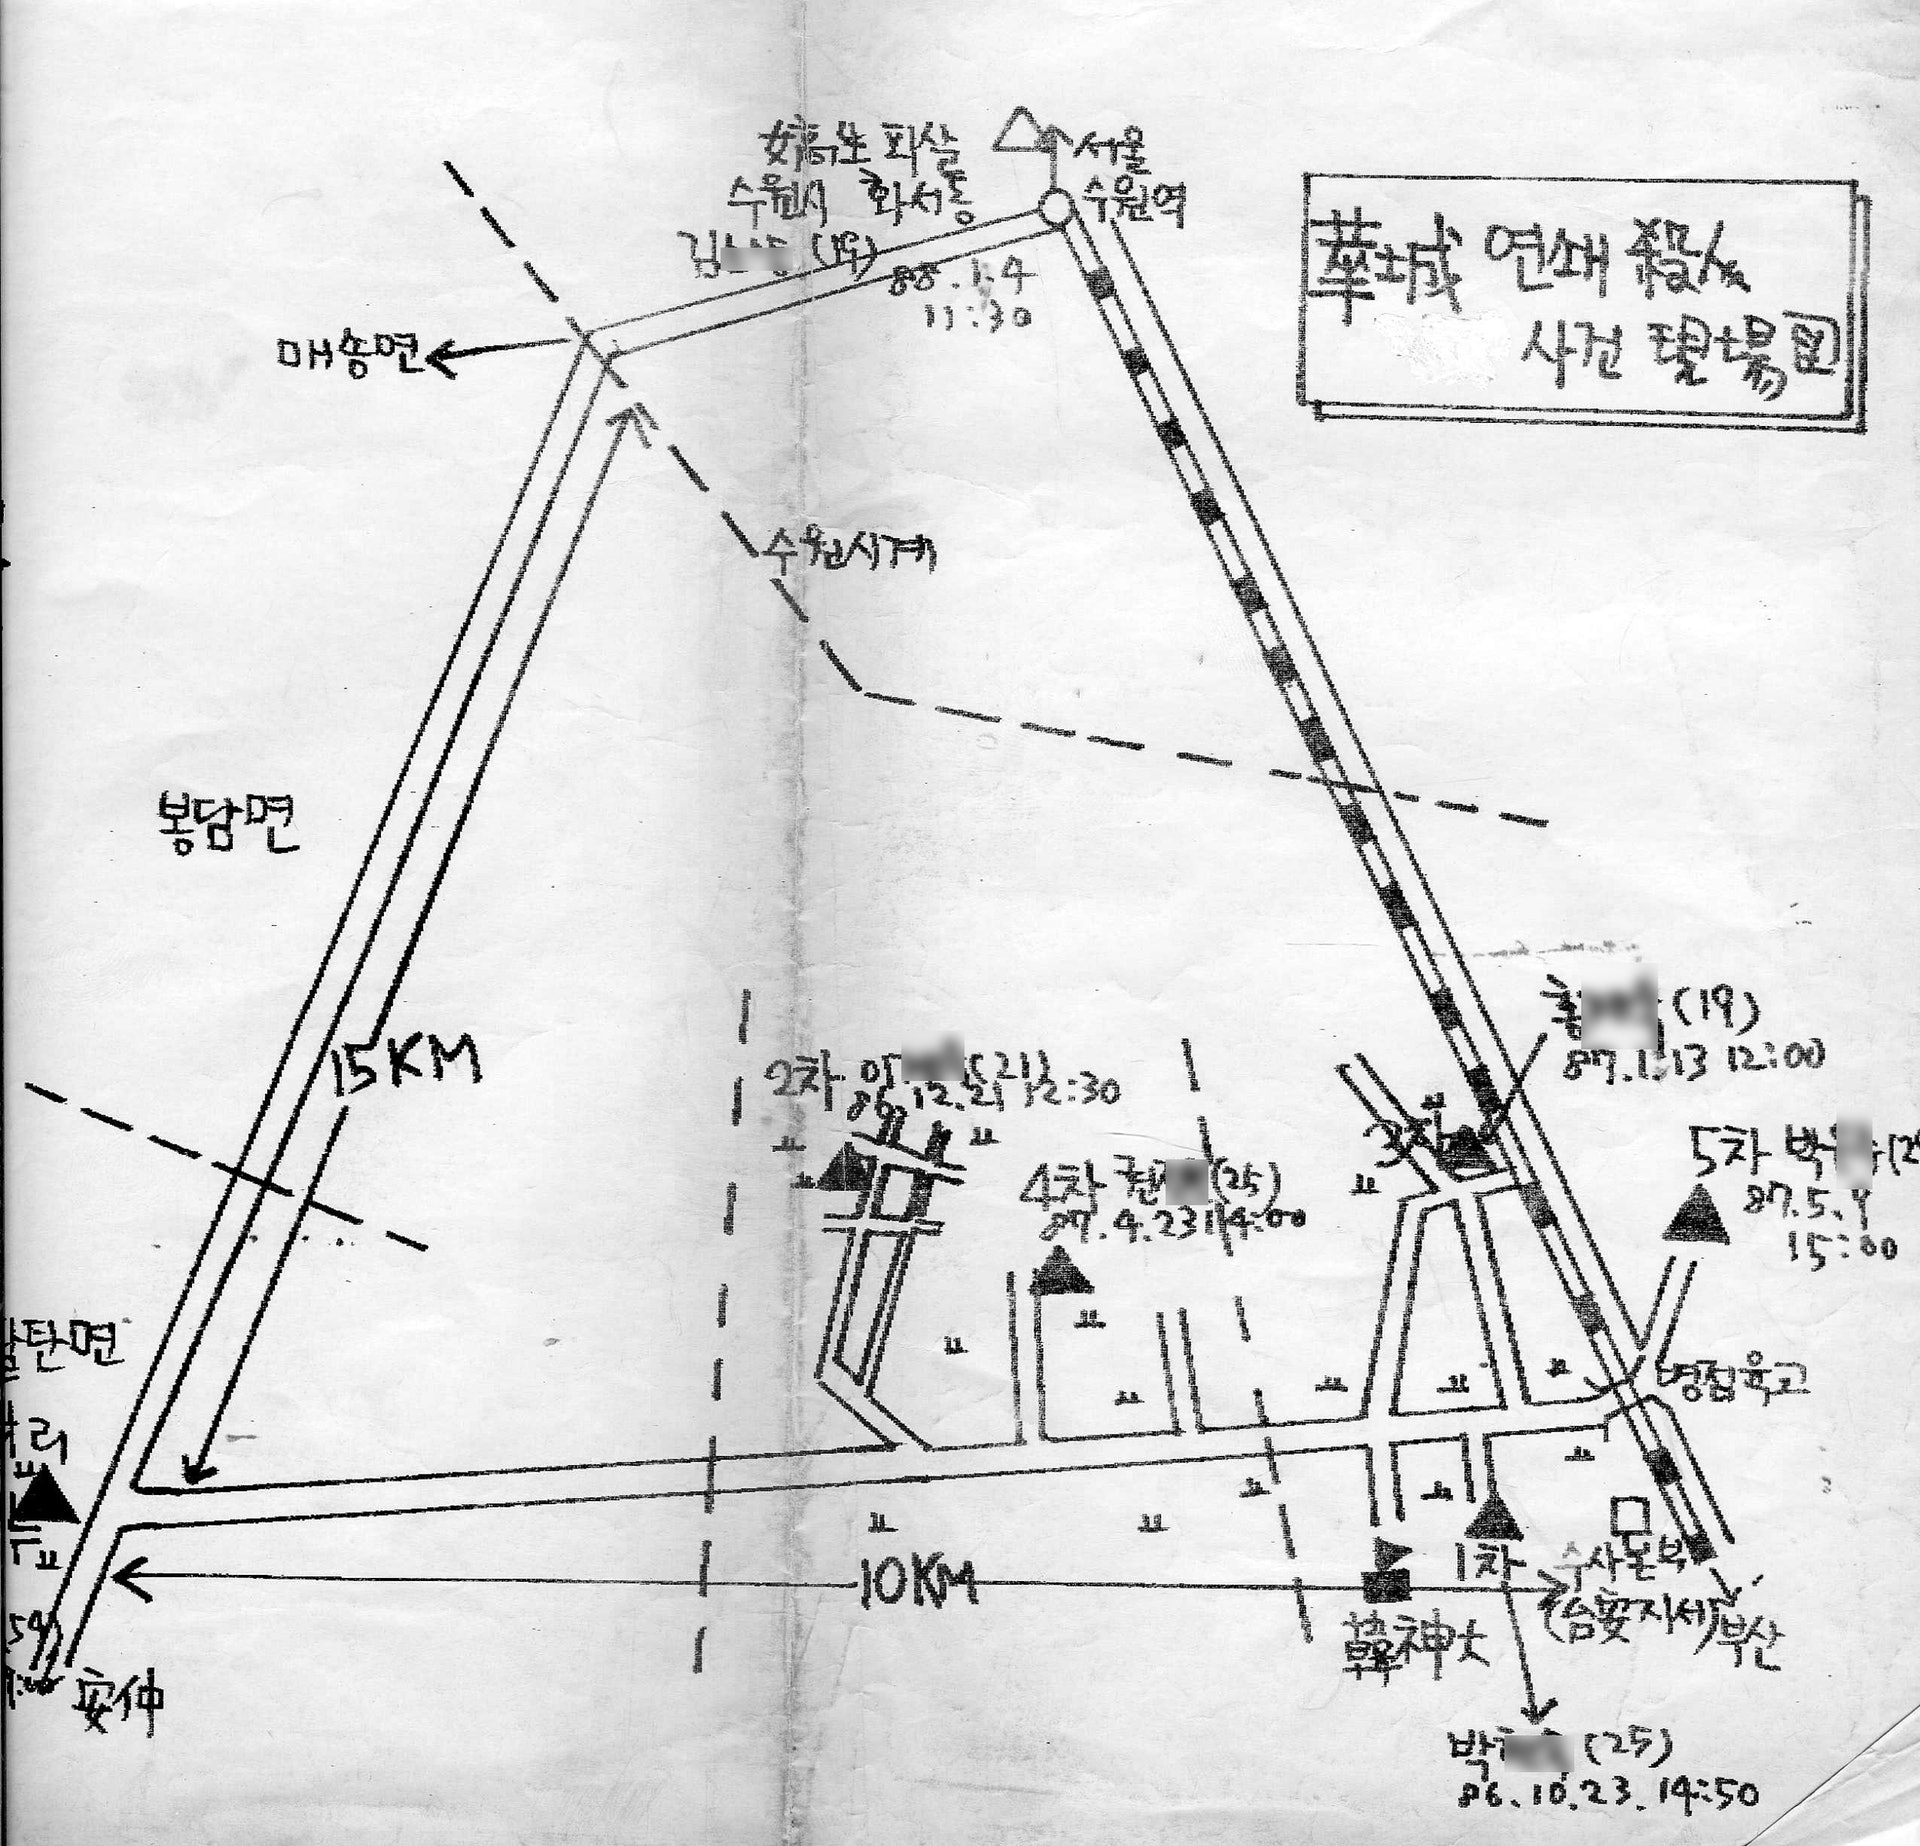 女高生 피살
수원시 화서동
김 (19)
88.1.4
11:30
서울
수원역
華城 연쇄 殺人
사건 現場図
매송면
수원시계
봉담면
15KM
황 (19)
87.1.13 12:00
2차 이 (21)
86.12.21 12:30
3차
4차 권 (25)
87.4.23 14:00
5차 박
87.5.
15:00
탄면
리
병점육고
10KM
1차
수사본부
(台安지서)
부산
韓神大
安仲
박 (25)
86.10.23.14:50